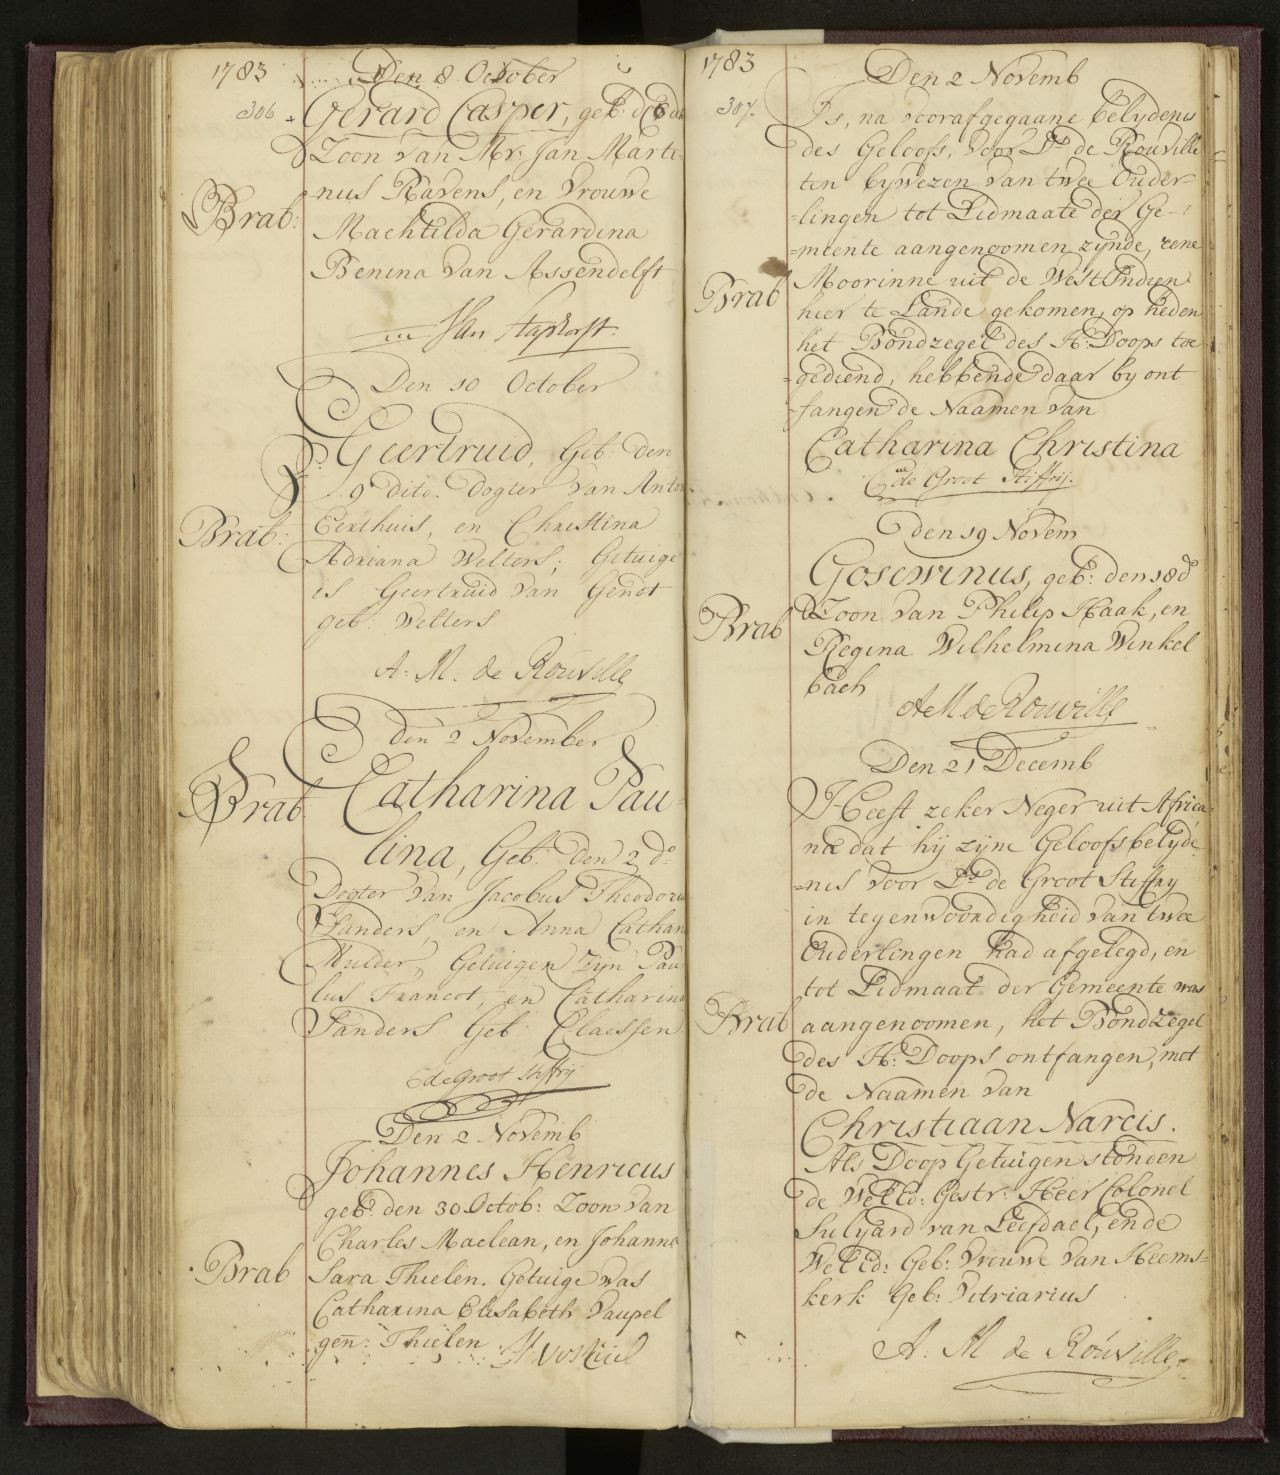 1783
306
Den 8 October
Gerard Casper, geb: de 6 do
Zoon van Mr. Jan Marti-
nus Ravens, en Vrouwe
Brab:
Machtilda Gerardina
Benina van Assendelft
Van Staphorst
Den 10 October
Geertruid, Geb: den
9 dito. Dogter van Anton
Brab:
Eerthuis, en Christina
Adriana Welters; Getuige
is Geertruid van Gendt
geb: Welters
A: M. de Rouville
den 2 November
Brab
Catharina Pau-
lina, Geb: den 2 do
Dogter van Jacobus Theodorus
Sanders, en Anna Cathar
Mulder, Getuigen zijn Pau-
lus Francot, en Catharina
Sanders Geb: Claessen
de Groot Stiffrij
Den 2 Novemb
Johannes Henricus
geb: den 30 Octob: Zoon van
Charles Maclean, en Johanna
Brab
Sara Thielen. Getuige was
Catharina Elisabeth Paupel
gen: Thielen
1783
307.
Den 2 Novemb
Is, na voorafgegaane belydenis
des Geloofs, voor Ds de Rouville
ten bywezen van twee Ouder-
lingen tot Lidmaate der Ge-
meente aangenoomen zynde, eene
Brab
Moorinne uit de West Indien
hier te Lande gekomen, op heden
het Bondzegel des H: Doops toe
gediend, hebbende daar by ont
fangen de Naamen van
Catharina Christina
de Groot Stiffrij.
den 19 Novem
Gosewinus, geb: den 18 do
Brab
Zoon van Philip Haak, en
Regina Wilhelmina Winkel
bach
A M de Rouville
Den 21 Decemb
Heeft zeker Neger uit Africa
na dat hij zyne Geloofsbelyde
nis voor Ds de Groot Stiffry
in tegenwoordigheid van twee
Ouderlingen had afgelegd, en
tot Lidmaat der Gemeente was
Brab
aangenoomen, het Bondzegel
des H: Doops ontfangen, met
de Naamen van
Christiaan Narcis.
Als Doop Getuigen stonden
de Wel Ed: Gestr: Heer Colonel
Sulyard van Leefdael, en de
Wel Ed: Geb: Vrouwe van Heems-
kerk Geb: Vitriarius
A. M de Rouville